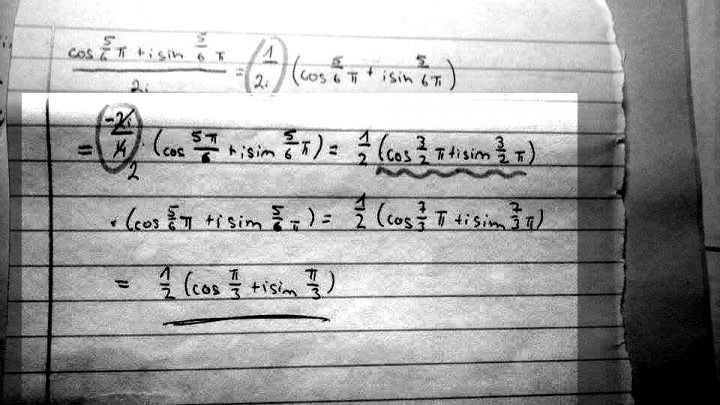 (cos 5/6 π + i sin 5/6 π)/2i = (1/2i) (cos 5/6 π + i sin 5/6 π)
= (-2i/4) · (cos 5π/6 + i sin 5/6 π) = 1/2 (cos 3/2 π + i sin 3/2 π)
· (cos 5/6 π + i sin 5/6 π) = 1/2 (cos 7/3 π + i sin 7/3 π)
= 1/2 (cos π/3 + i sin π/3)